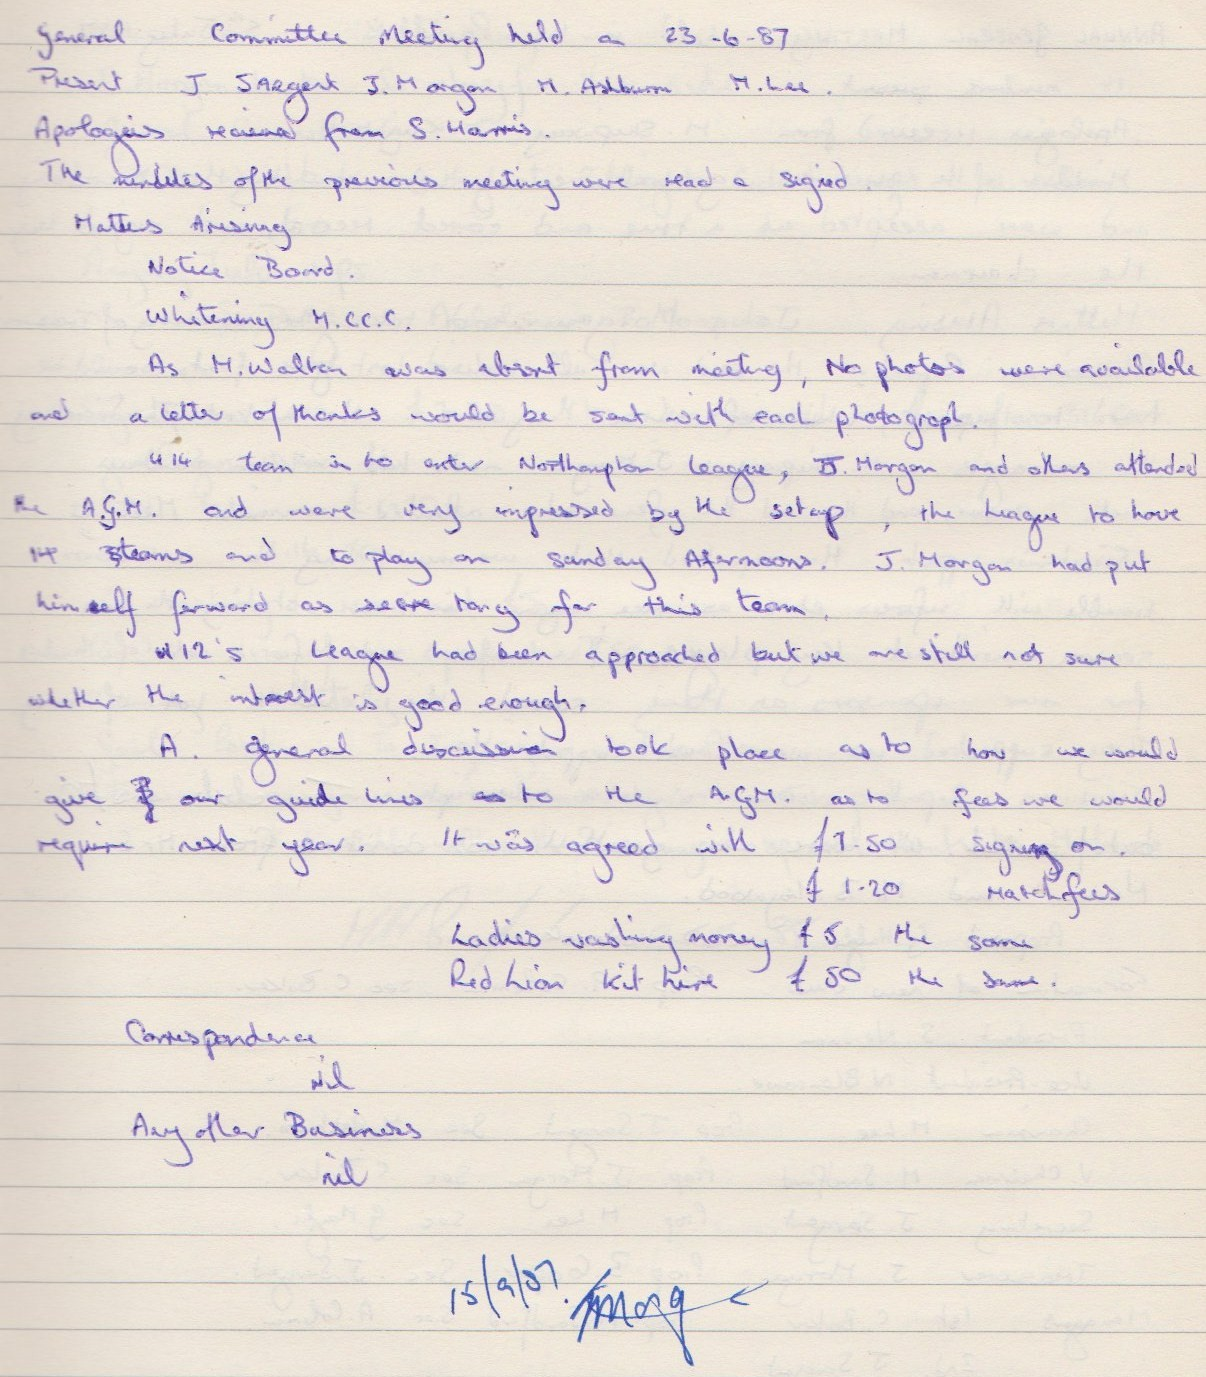 General Committee Meeting held on 23-6-87
Present J Sargent J. Morgan M. Ashburn M. Lee.
Apologies received from S. Harris.
The minutes of the previous meeting were read & signed.
Matters Arising
Notice Board.
Whitening M.C.C.C.
As M. Walton was absent from meeting, No photos were available
and a letter of thanks would be sent with each photograph.
U14 team is to enter Northampton League, J. Morgan and others attended
the A.G.M. and were very impressed by the setup, the League to have
14 teams and to play on Sunday Afernoons. J. Morgan had put
himself forward as secretary for this team.
U12's League had been approached but we are still not sure
whether the interest is good enough.
A. general discussion took place as to how we would
give our guide lines to the A.G.M. as to fees we would
require next year. It was agreed with £7.50 signing on.
£1.20 Match fees
Ladies washing money £5 the same
Red Lion kit hire £50 the same.
Correspondence
Nil
Any other Business
nil
15/9/87.